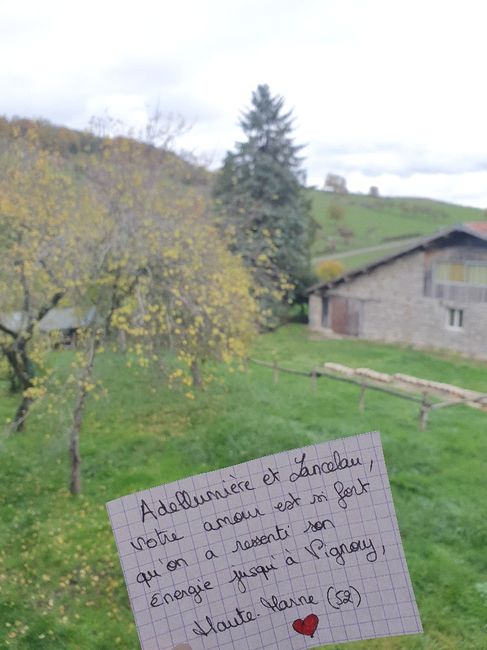 Adellumière et Lancelau,
votre amour est si fort
qu'on a ressenti son
énergie jusqu'à Pignoy,
Haute-Marne (52)